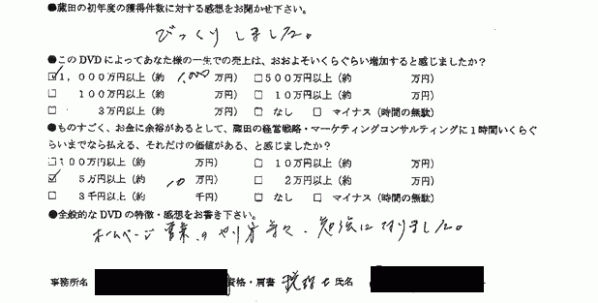 ●蔵田の初年度の獲得件数に対する感想をお聞かせ下さい。
びっくりしました。
●このDVDによってあなた様の一生での売上は、おおよそいくらぐらい増加すると感じましたか？
☑1,000万円以上（約 1,000 万円） □500万円以上（約 万円）
□ 100万円以上（約 万円） □ 10万円以上（約 万円）
□ 3万円以上（約 万円） □ なし □ マイナス（時間の無駄）
●ものすごく、お金に余裕があるとして、蔵田の経営戦略・マーケティングコンサルティングに1時間いくらぐ
らいまでなら払える、それだけの価値がある、と感じましたか？
□100万円以上（約 万円） □ 10万円以上（約 万円）
☑ 5万円以上（約 10 万円） □ 2万円以上（約 万円）
□ 3千円以上（約 千円） □ なし □ マイナス（時間の無駄）
●全般的なDVDの特徴・感想をお書き下さい。
ホームページ、営業のやり方等々、勉強になりました。
事務所名 資格・肩書 税理士 氏名